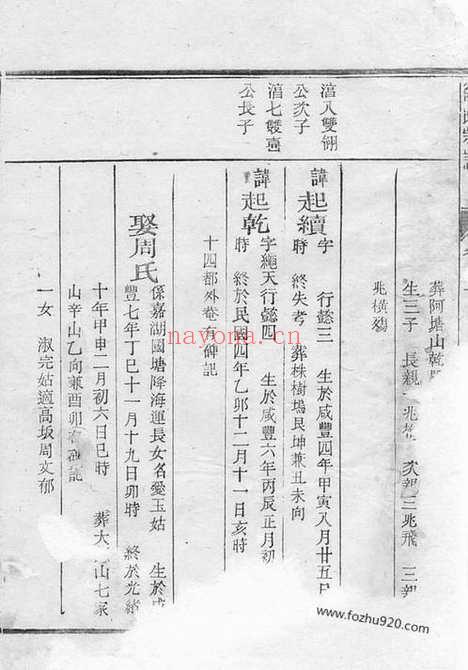 葬阿塘山乾
生三子 長親 兆 次親 三兆飛 三親
兆橫殤
湆八雙翎
公次子
諱起續字 行懿三 生於咸豐四年甲寅八月廿五日
時 終失考 葬株樹塢艮坤兼丑未向
湆七雙壺
公長子
諱起乾字繩天行懿四 生於咸豐六年丙辰正月初
時 終於民國四年乙卯十二月十一日亥時
十四都外菴有碑記
娶周氏係嘉湖國塘降海運長女名愛玉姑 生於咸
豐七年丁巳十一月十九日卯時 終於光緒
十年甲申二月初六日巳時 葬大 山七家
山辛山乙向兼酉卯有碑記
一女 淑完姑適高坂周文郁
nayona.cn
www.fozhu920.com